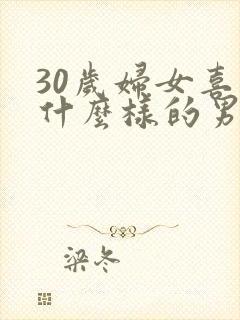 30歲婦女喜
什麼樣的男
梁冬